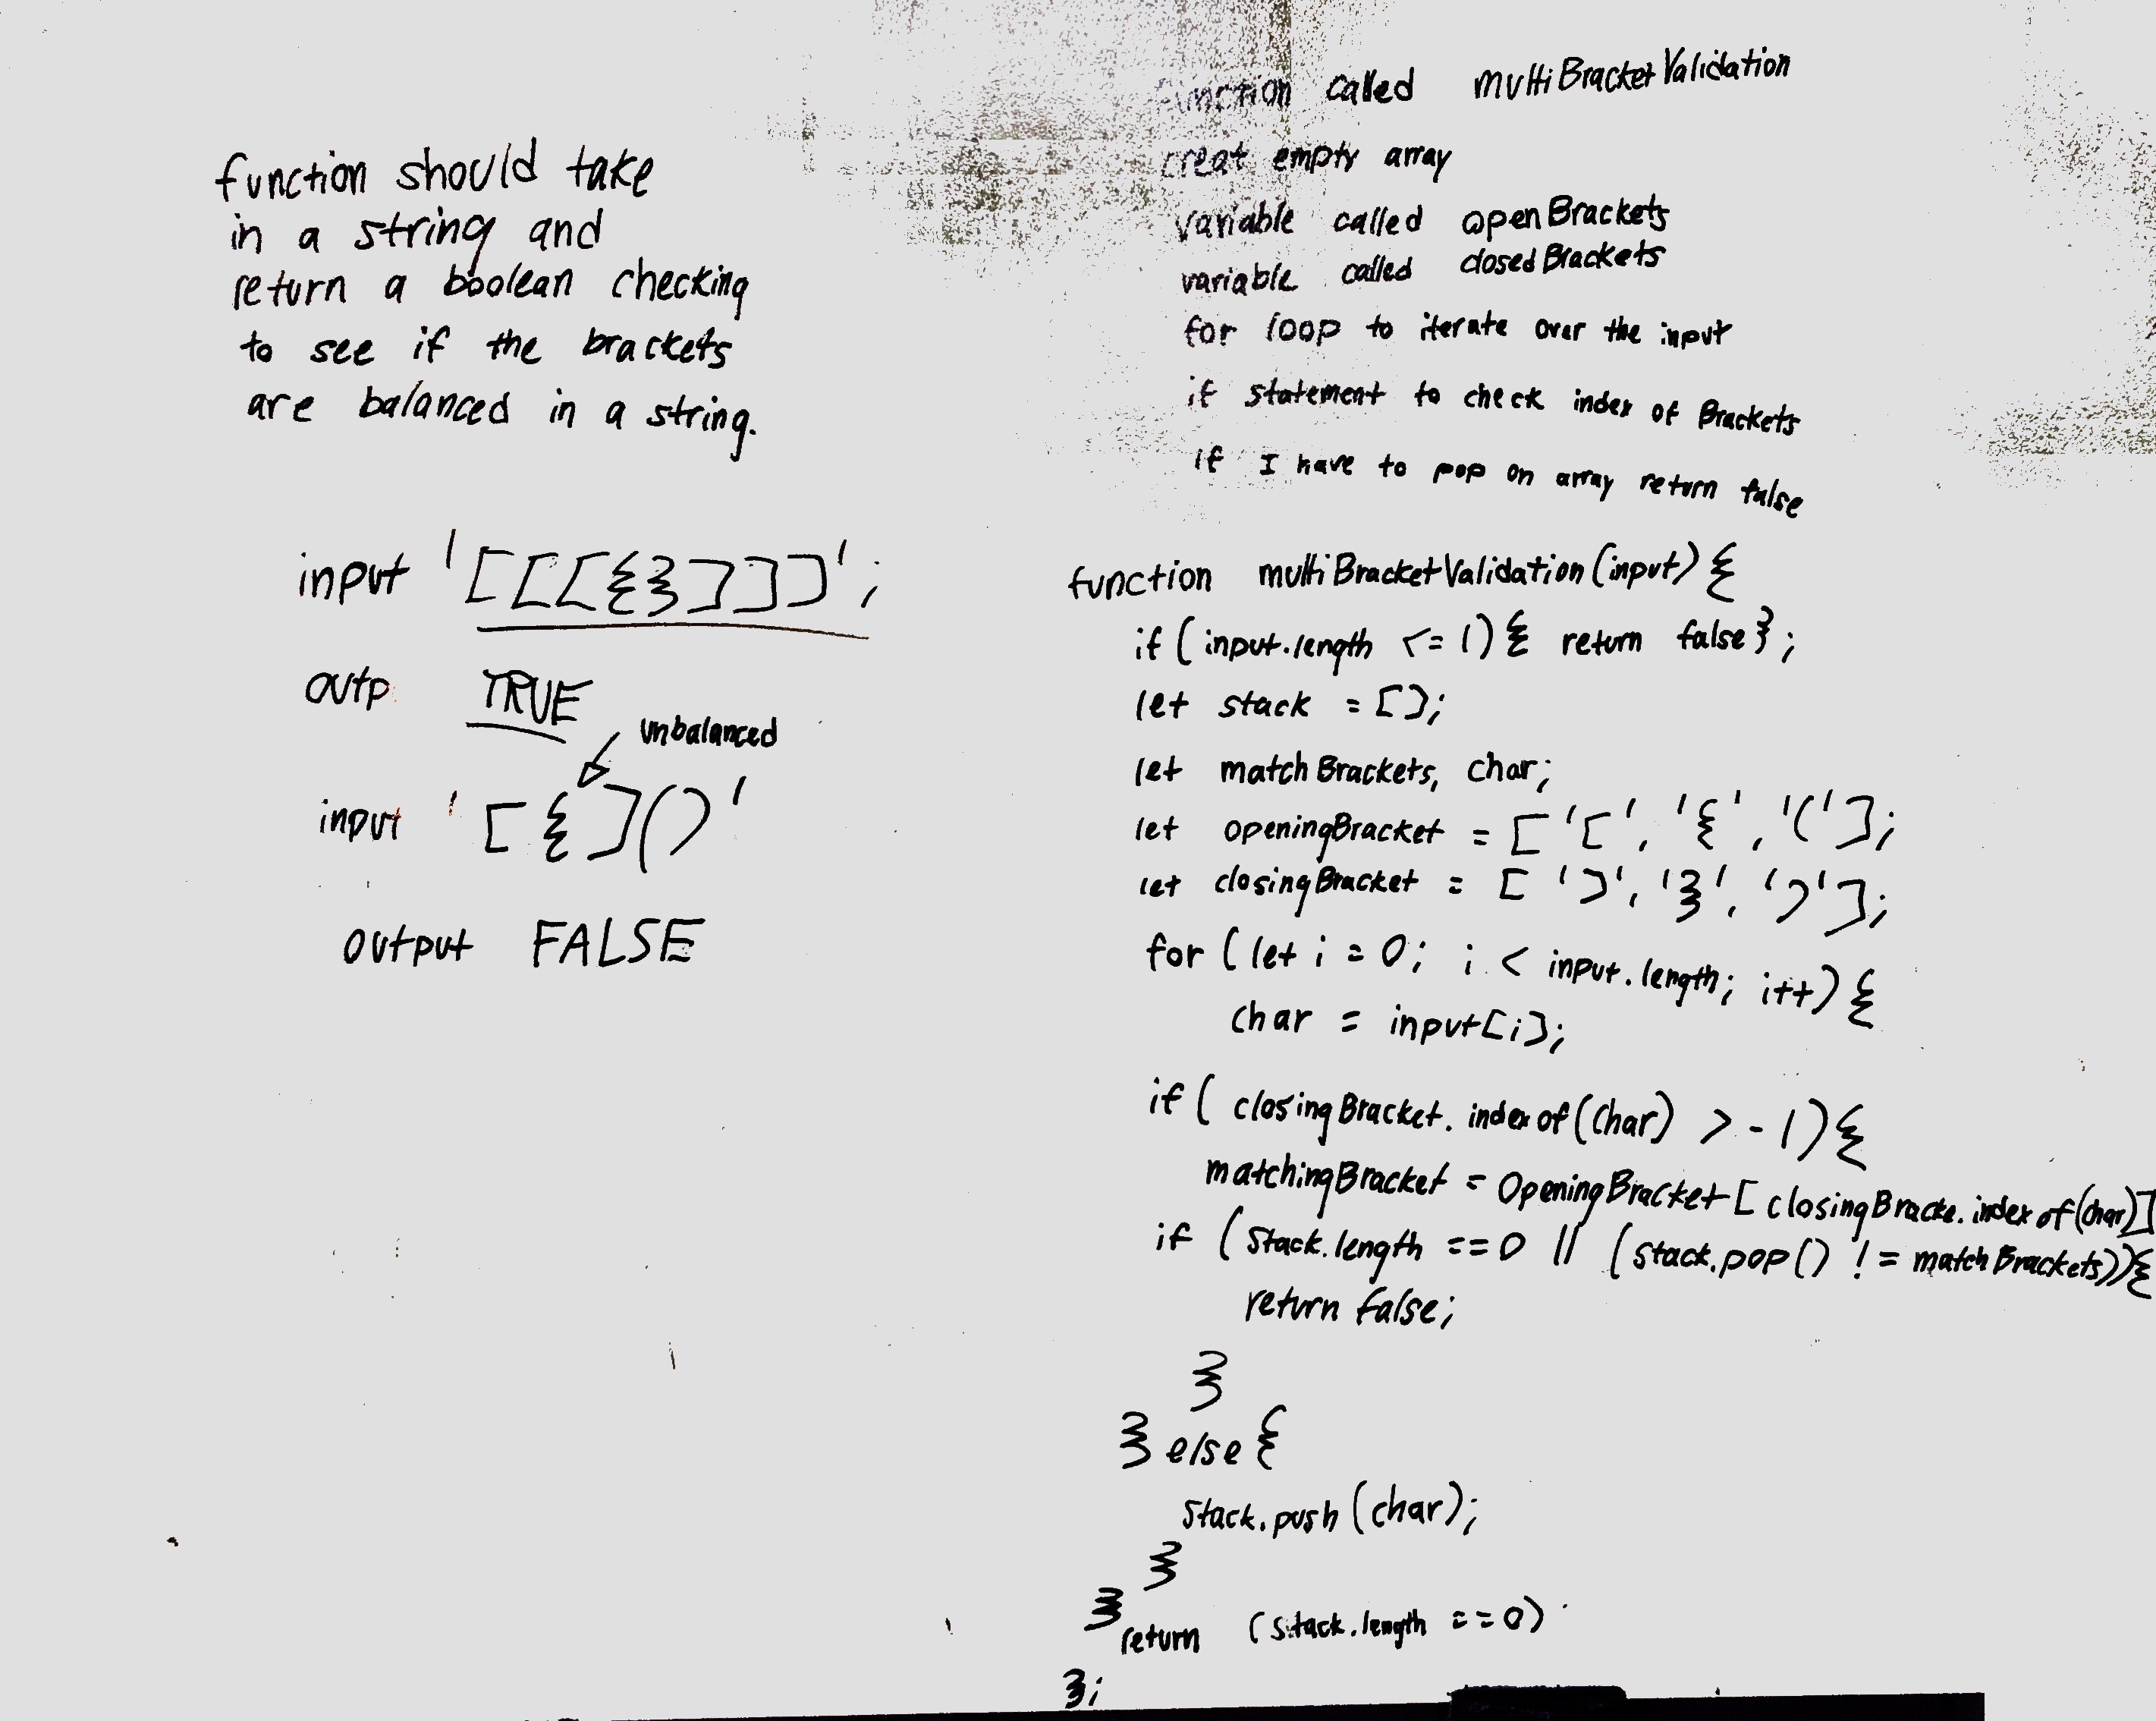 function should take
in a string and
return a boolean checking
to see if the brackets
are balanced in a string.
input '[[[{}]]]';
outp TRUE
unbalanced
input '[{]()'
output FALSE
function called multiBracketValidation
creat empty array
variable called openBrackets
variable called closedBrackets
for loop to iterate over the input
if statement to check index of Brackets
if I have to pop on array return false
function multiBracketValidation(input) {
if (input.length <= 1) { return false };
let stack = [];
let matchBrackets, char;
let openingBracket = ['[', '{', '('];
let closingBracket = [']', '}', ')'];
for (let i = 0; i < input.length; i++) {
char = input[i];
if ( closingBracket.indexof(char) > -1) {
matchingBracket = OpeningBracket [ closingBracke.indexof(char)]
if (stack.length ==0 || (stack.pop() != matchBrackets)){
return false;
}
} else {
stack.push(char);
}
} return (stack.length ==0)
};